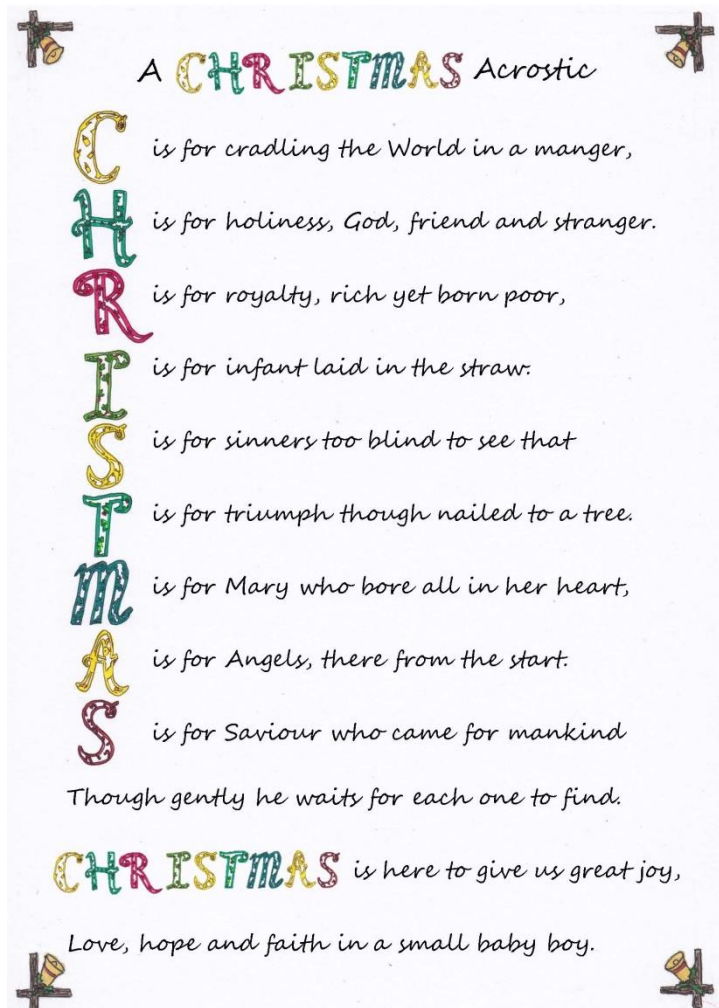 A CHRISTMAS Acrostic
C is for cradling the World in a manger,
H is for holiness, God, friend and stranger.
R is for royalty, rich yet born poor,
I is for infant laid in the straw.
S is for sinners too blind to see that
T is for triumph though nailed to a tree.
M is for Mary who bore all in her heart,
A is for Angels, there from the start.
S is for Saviour who came for mankind
Though gently he waits for each one to find.
CHRISTMAS is here to give us great joy,
Love, hope and faith in a small baby boy.